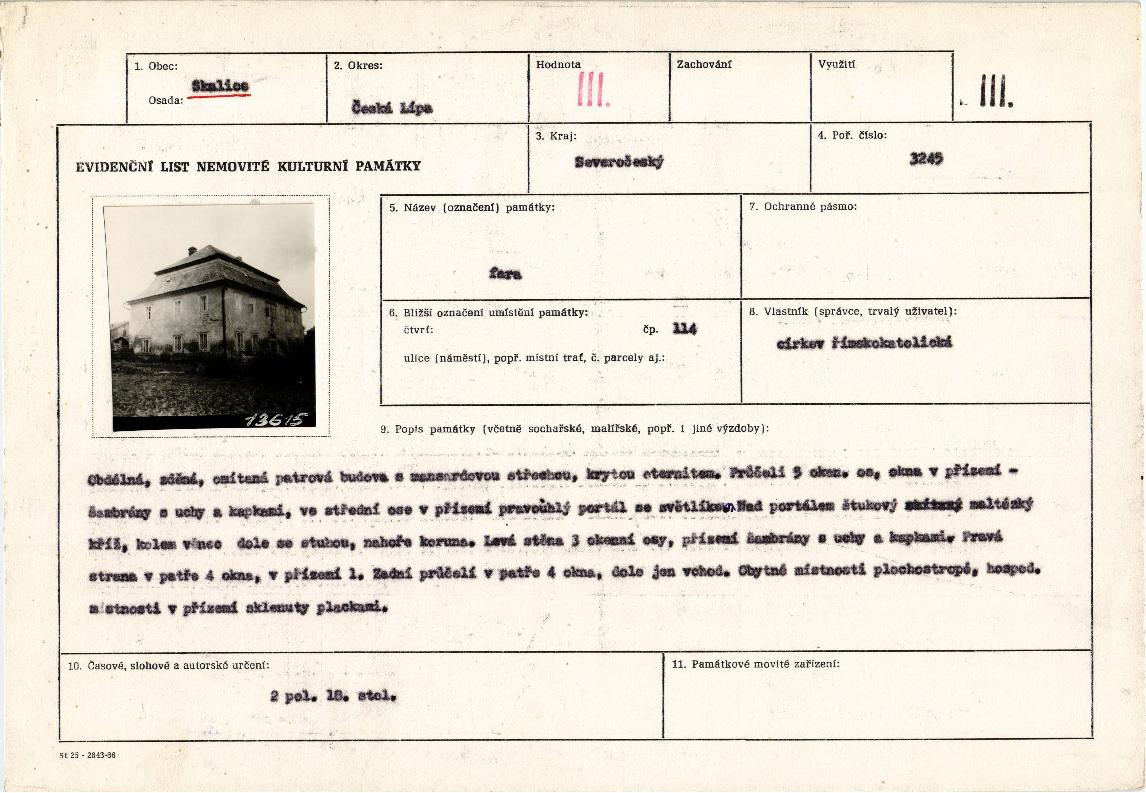 1. Obec:
Skalice
Osada:
2. Okres:
Česká Lípa
Hodnota
III.
Zachování
Využití
III.
EVIDENČNÍ LIST NEMOVITÉ KULTURNÍ PAMÁTKY
3. Kraj:
Severočeský
4. Poř. číslo:
3245
13615
5. Název (označení) památky:
fara
7. Ochranné pásmo:
6. Bližší označení umístění památky:
čtvrť:
čp. 114
ulice (náměstí), popř. místní trať, č. parcely aj.:
8. Vlastník (správce, trvalý uživatel):
církev římskokatolická
9. Popis památky (včetně sochařské, malířské, popř. i jiné výzdoby):
Obdélná, zděná, omítaná patrová budova s mansardovou střechou, krytou eternitem. Průčelí 5 oken. os, okna v přízemí -
šambrány s uchy a kapkami, ve střední ose v přízemí pravoúhlý portál se světlíkem. Nad portálem štukový maltézský
kříž, kolem věnec dole se stuhou, nahoře koruna. Levá stěna 3 okenní osy, přízemí šambrány s uchy a kapkami. Pravá
strana v patře 4 okna, v přízemí 1. Zadní průčelí v patře 4 okna, dole jen vchod. Obytné místnosti plochostropé, hospod.
místnosti v přízemí sklenuty plackami.
10. Časové, slohové a autorské určení:
2 pol. 18. stol.
11. Památkové movité zařízení:
St 25 - 2843-66